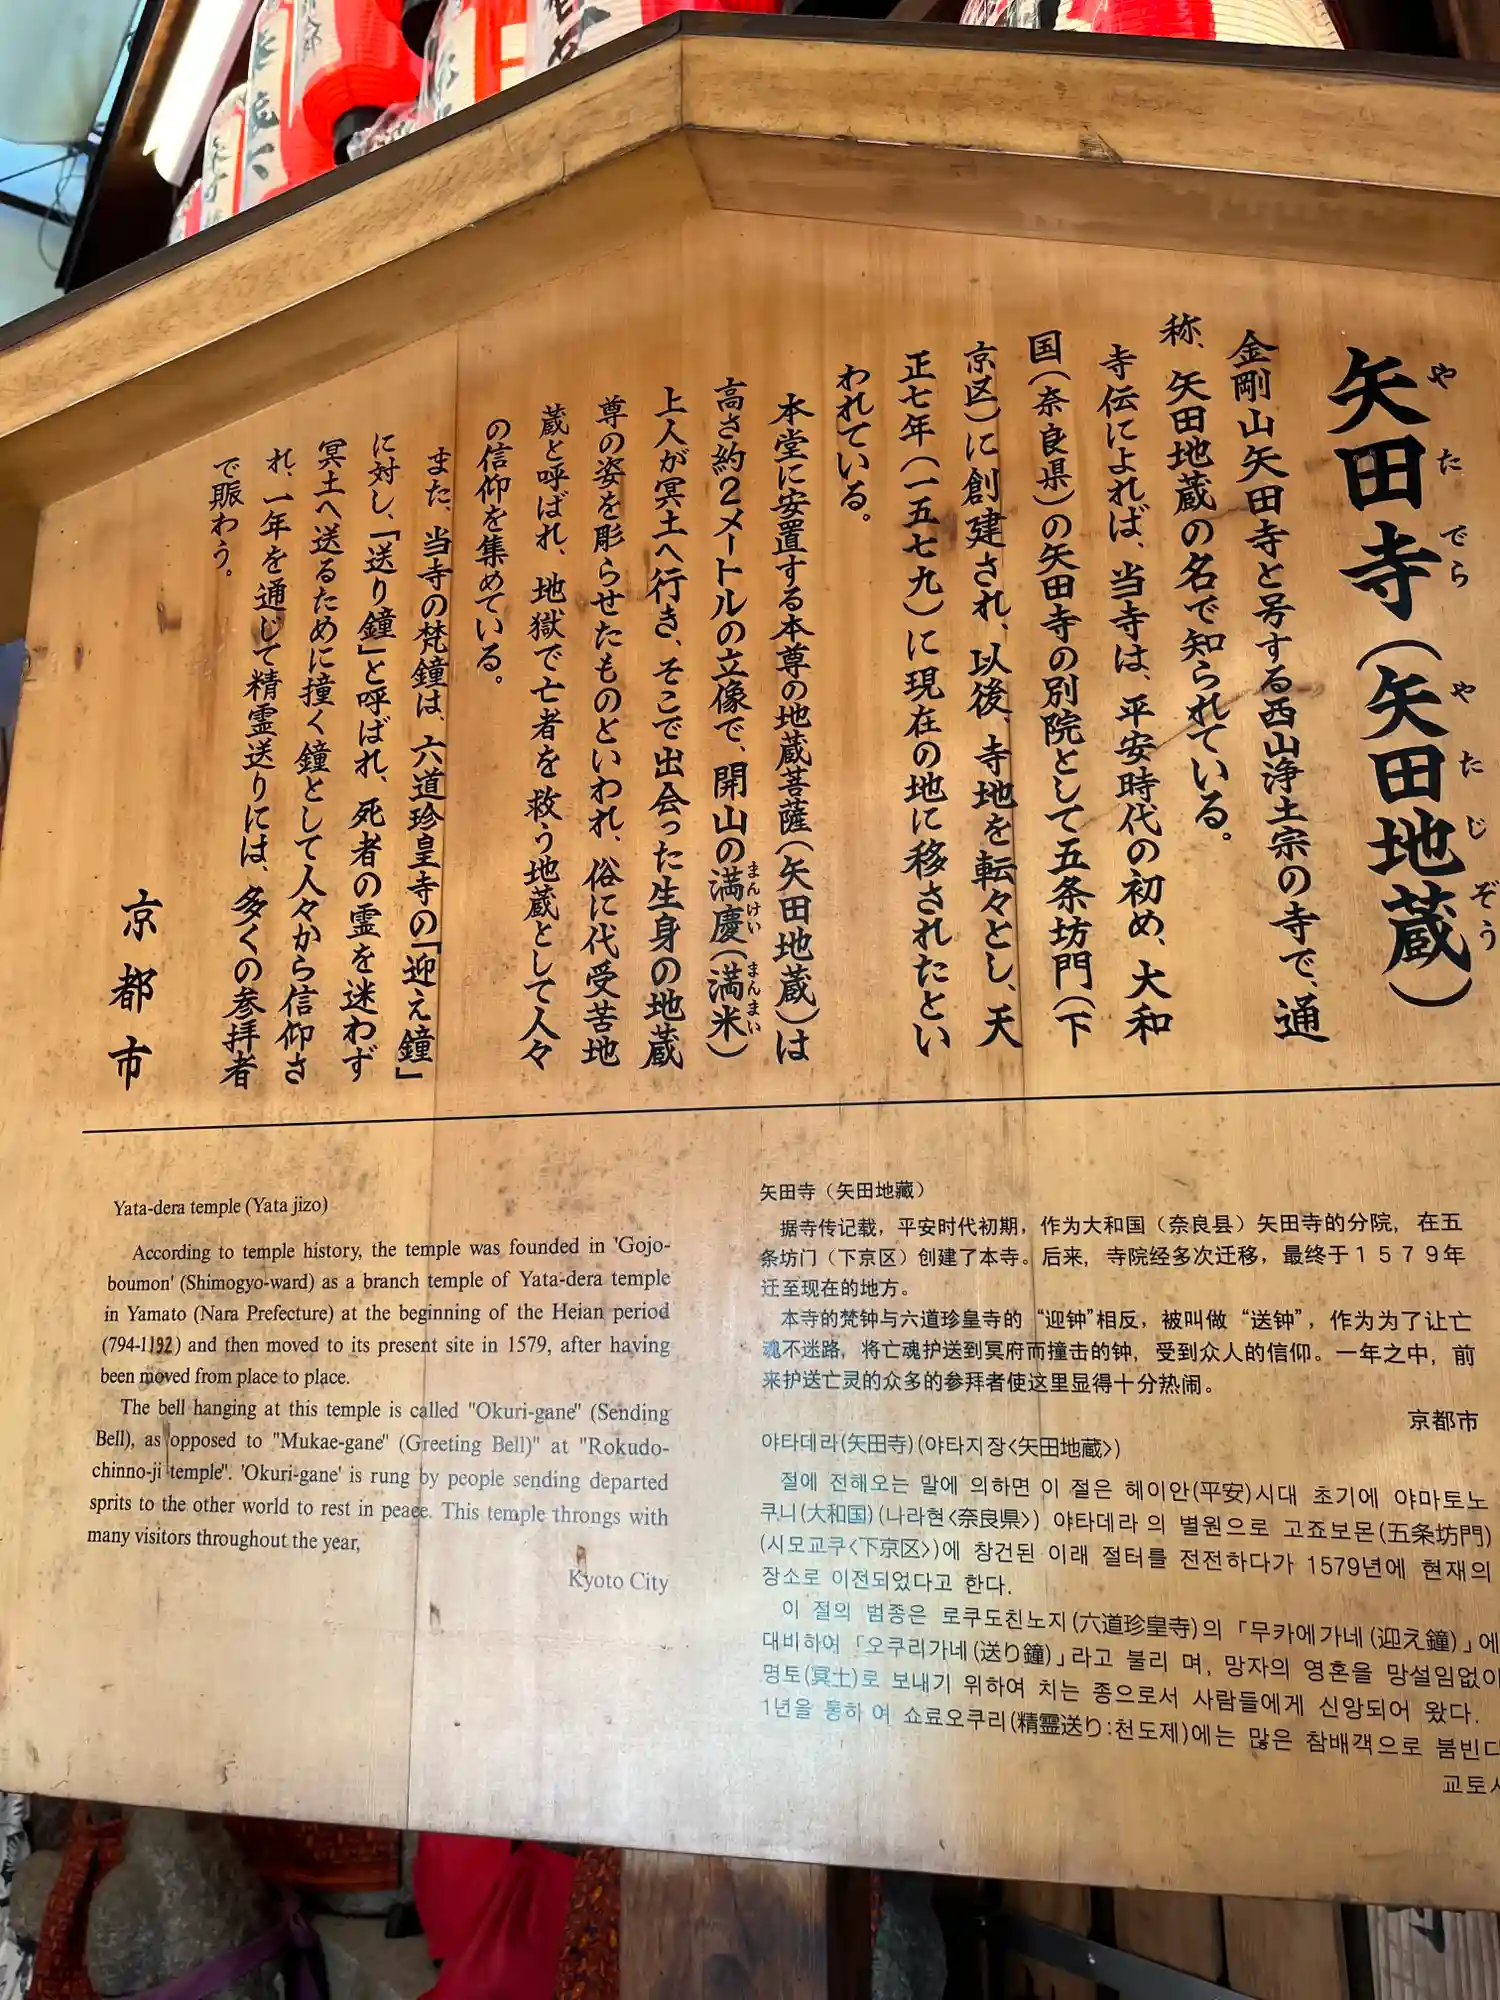 矢田寺（矢田地蔵）
やたでら　やたじぞう
金剛山矢田寺と号する西山浄土宗の寺で、通
称、矢田地蔵の名で知られている。
寺伝によれば、当寺は、平安時代の初め、大和
国（奈良県）の矢田寺の別院として五条坊門（下
京区）に創建され、以後、寺地を転々とし、天
正七年（一五七九）に現在の地に移されたとい
われている。
本堂に安置する本尊の地蔵菩薩（矢田地蔵）は
高さ約２メートルの立像で、開山の満慶（満米）
まんけい　まんまい
上人が冥土へ行き、そこで出会った生身の地蔵
尊の姿を彫らせたものといわれ、俗に代受苦地
蔵と呼ばれ、地獄で亡者を救う地蔵として人々
の信仰を集めている。
また、当寺の梵鐘は、六道珍皇寺の「迎え鐘」
に対し、「送り鐘」と呼ばれ、死者の霊を迷わず
冥土へ送るために撞く鐘として人々から信仰さ
れ、一年を通じて精霊送りには、多くの参拝者
で賑わう。
京都市
Yata-dera temple (Yata jizo)
According to temple history, the temple was founded in 'Gojo-
boumon' (Shimogyo-ward) as a branch temple of Yata-dera temple
in Yamato (Nara Prefecture) at the beginning of the Heian period
(794-1192) and then moved to its present site in 1579, after having
been moved from place to place.
The bell hanging at this temple is called "Okuri-gane" (Sending
Bell), as opposed to "Mukae-gane" (Greeting Bell)" at "Rokudo-
chinno-ji temple". 'Okuri-gane' is rung by people sending departed
sprits to the other world to rest in peace. This temple throngs with
many visitors throughout the year,
Kyoto City
矢田寺（矢田地藏）
据寺传记载，平安时代初期，作为大和国（奈良县）矢田寺的分院，在五
条坊门（下京区）创建了本寺。后来，寺院经多次迁移，最终于１５７９年
迁至现在的地方。
本寺的梵钟与六道珍皇寺的“迎钟”相反，被叫做“送钟”，作为为了让亡
魂不迷路，将亡魂护送到冥府而撞击的钟，受到众人的信仰。一年之中，前
来护送亡灵的众多的参拜者使这里显得十分热闹。
京都市
야타데라(矢田寺)(야타지장<矢田地蔵>)
절에 전해오는 말에 의하면 이 절은 헤이안(平安)시대 초기에 야마토노
쿠니(大和国)(나라현<奈良県>) 야타데라 의 별원으로 고죠보몬(五条坊門)
(시모교쿠<下京区>)에 창건된 이래 절터를 전전하다가 1579년에 현재의
장소로 이전되었다고 한다.
이 절의 범종은 로쿠도친노지(六道珍皇寺)의 「무카에가네(迎え鐘)」에
대비하여 「오쿠리가네(送り鐘)」라고 불리 며, 망자의 영혼을 망설임없이
명토(冥土)로 보내기 위하여 치는 종으로서 사람들에게 신앙되어 왔다.
1년을 통하 여 쇼료오쿠리(精霊送り:천도제)에는 많은 참배객으로 붐빈다
교토시